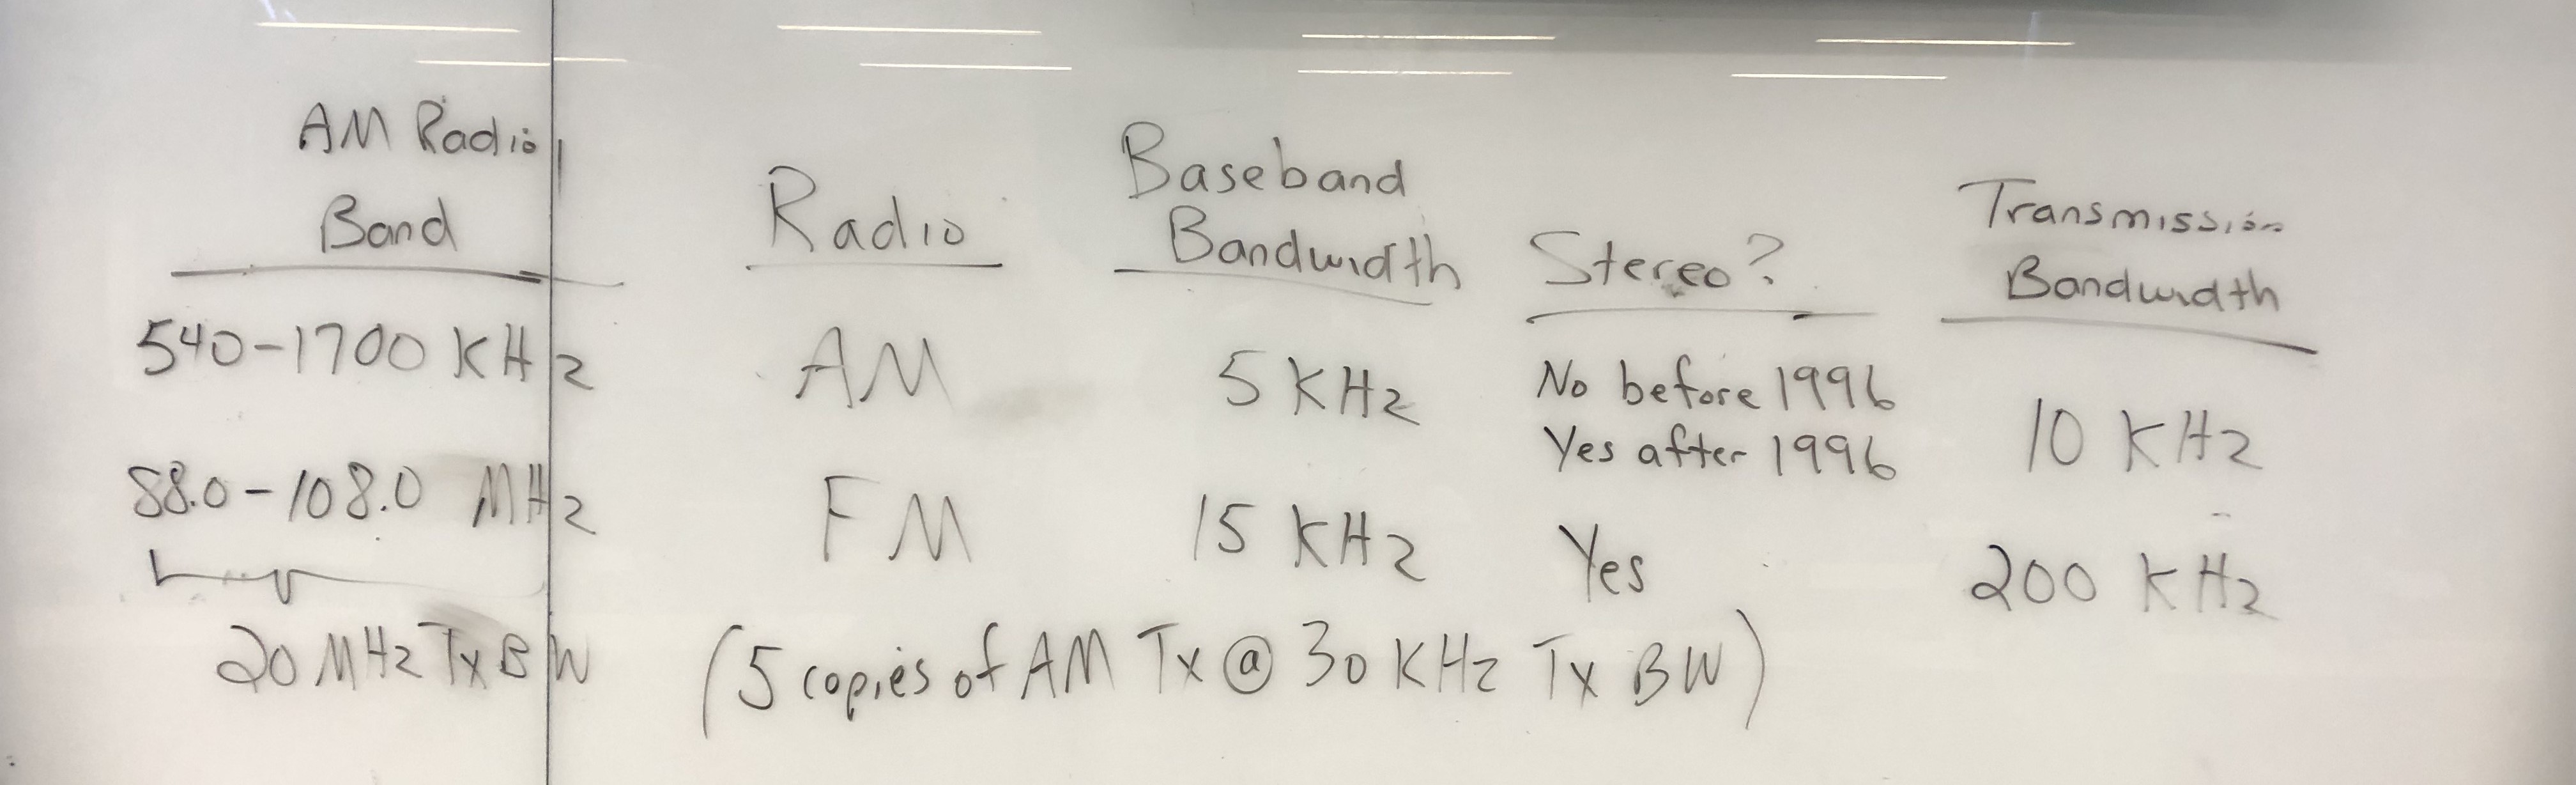 AM Radio
Band
Radio
Baseband
Bandwidth
Stereo?
Transmission
Bandwidth
540-1700 KHz
AM
5 KHz
No before 1996
Yes after 1996
10 KHz
88.0-108.0 MHz
FM
15 KHz
Yes
200 KHz
20 MHz Tx BW
(5 copies of AM Tx @ 30 KHz Tx BW)